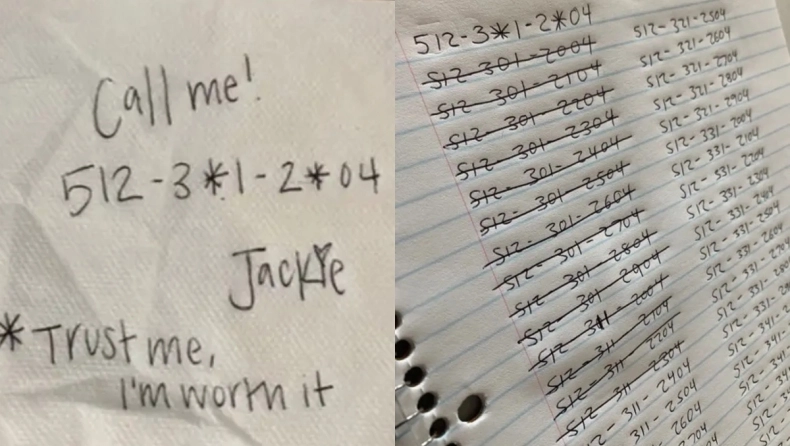 Call me!
512-3*1-2*04
Jackie
*Trust me,
I'm worth it
512-3*1-2*04
512-301-2004
512-301-2104
512-301-2204
512-301-2304
512-301-2404
512-301-2504
512-301-2604
512-301-2704
512-301-2804
512-301-2904
512-311-2004
512-311-2104
512-311-2204
512-311-2304
512-311-2404
311-2504
2604
512-321-2504
512-321-2604
512-321-2704
512-321-2804
512-321-2904
512-331-2004
512-331-2104
512-331-2204
512-331-2304
512-331-2404
512-331-2504
512-331-2604